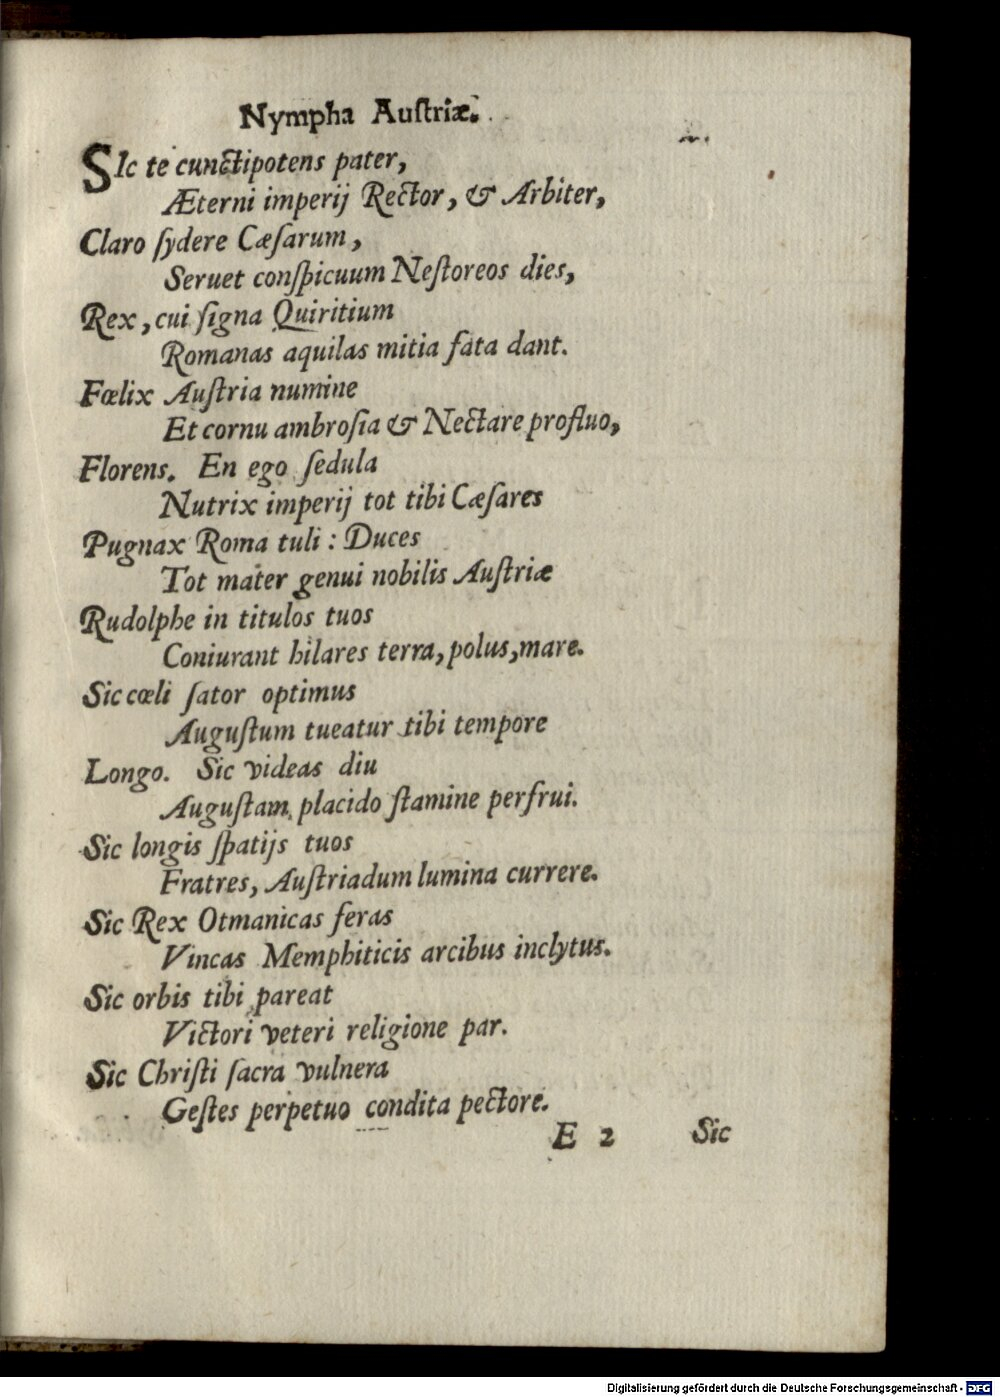 Nympha Auſtriæ.
SIc te cunctipotens pater,
Æterni imperij Rector, & Arbiter,
Claro ſydere Cæſarum,
Seruet conſpicuum Neſtoreos dies,
Rex, cui ſigna Quiritium
Romanas aquilas mitia fata dant.
Fœlix Auſtria numine
Et cornu ambroſia & Nectare profluo,
Florens. En ego ſedula
Nutrix imperij tot tibi Cæſares
Pugnax Roma tuli : Duces
Tot mater genui nobilis Auſtriæ
Rudolphe in titulos tuos
Coniurant hilares terra, polus, mare.
Sic cœli ſator optimus
Auguſtum tueatur tibi tempore
Longo. Sic videas diu
Auguſtam placido ſtamine perfrui.
Sic longis ſpatijs tuos
Fratres, Auſtriadum lumina currere.
Sic Rex Otmanicas feras
Vincas Memphiticis arcibus inclytus.
Sic orbis tibi pareat
Victori veteri religione par.
Sic Chriſti ſacra vulnera
Geſtes perpetuo condita pectore.
E 2 Sic
Digitalisierung gefördert durch die Deutsche Forschungsgemeinschaft - DFG